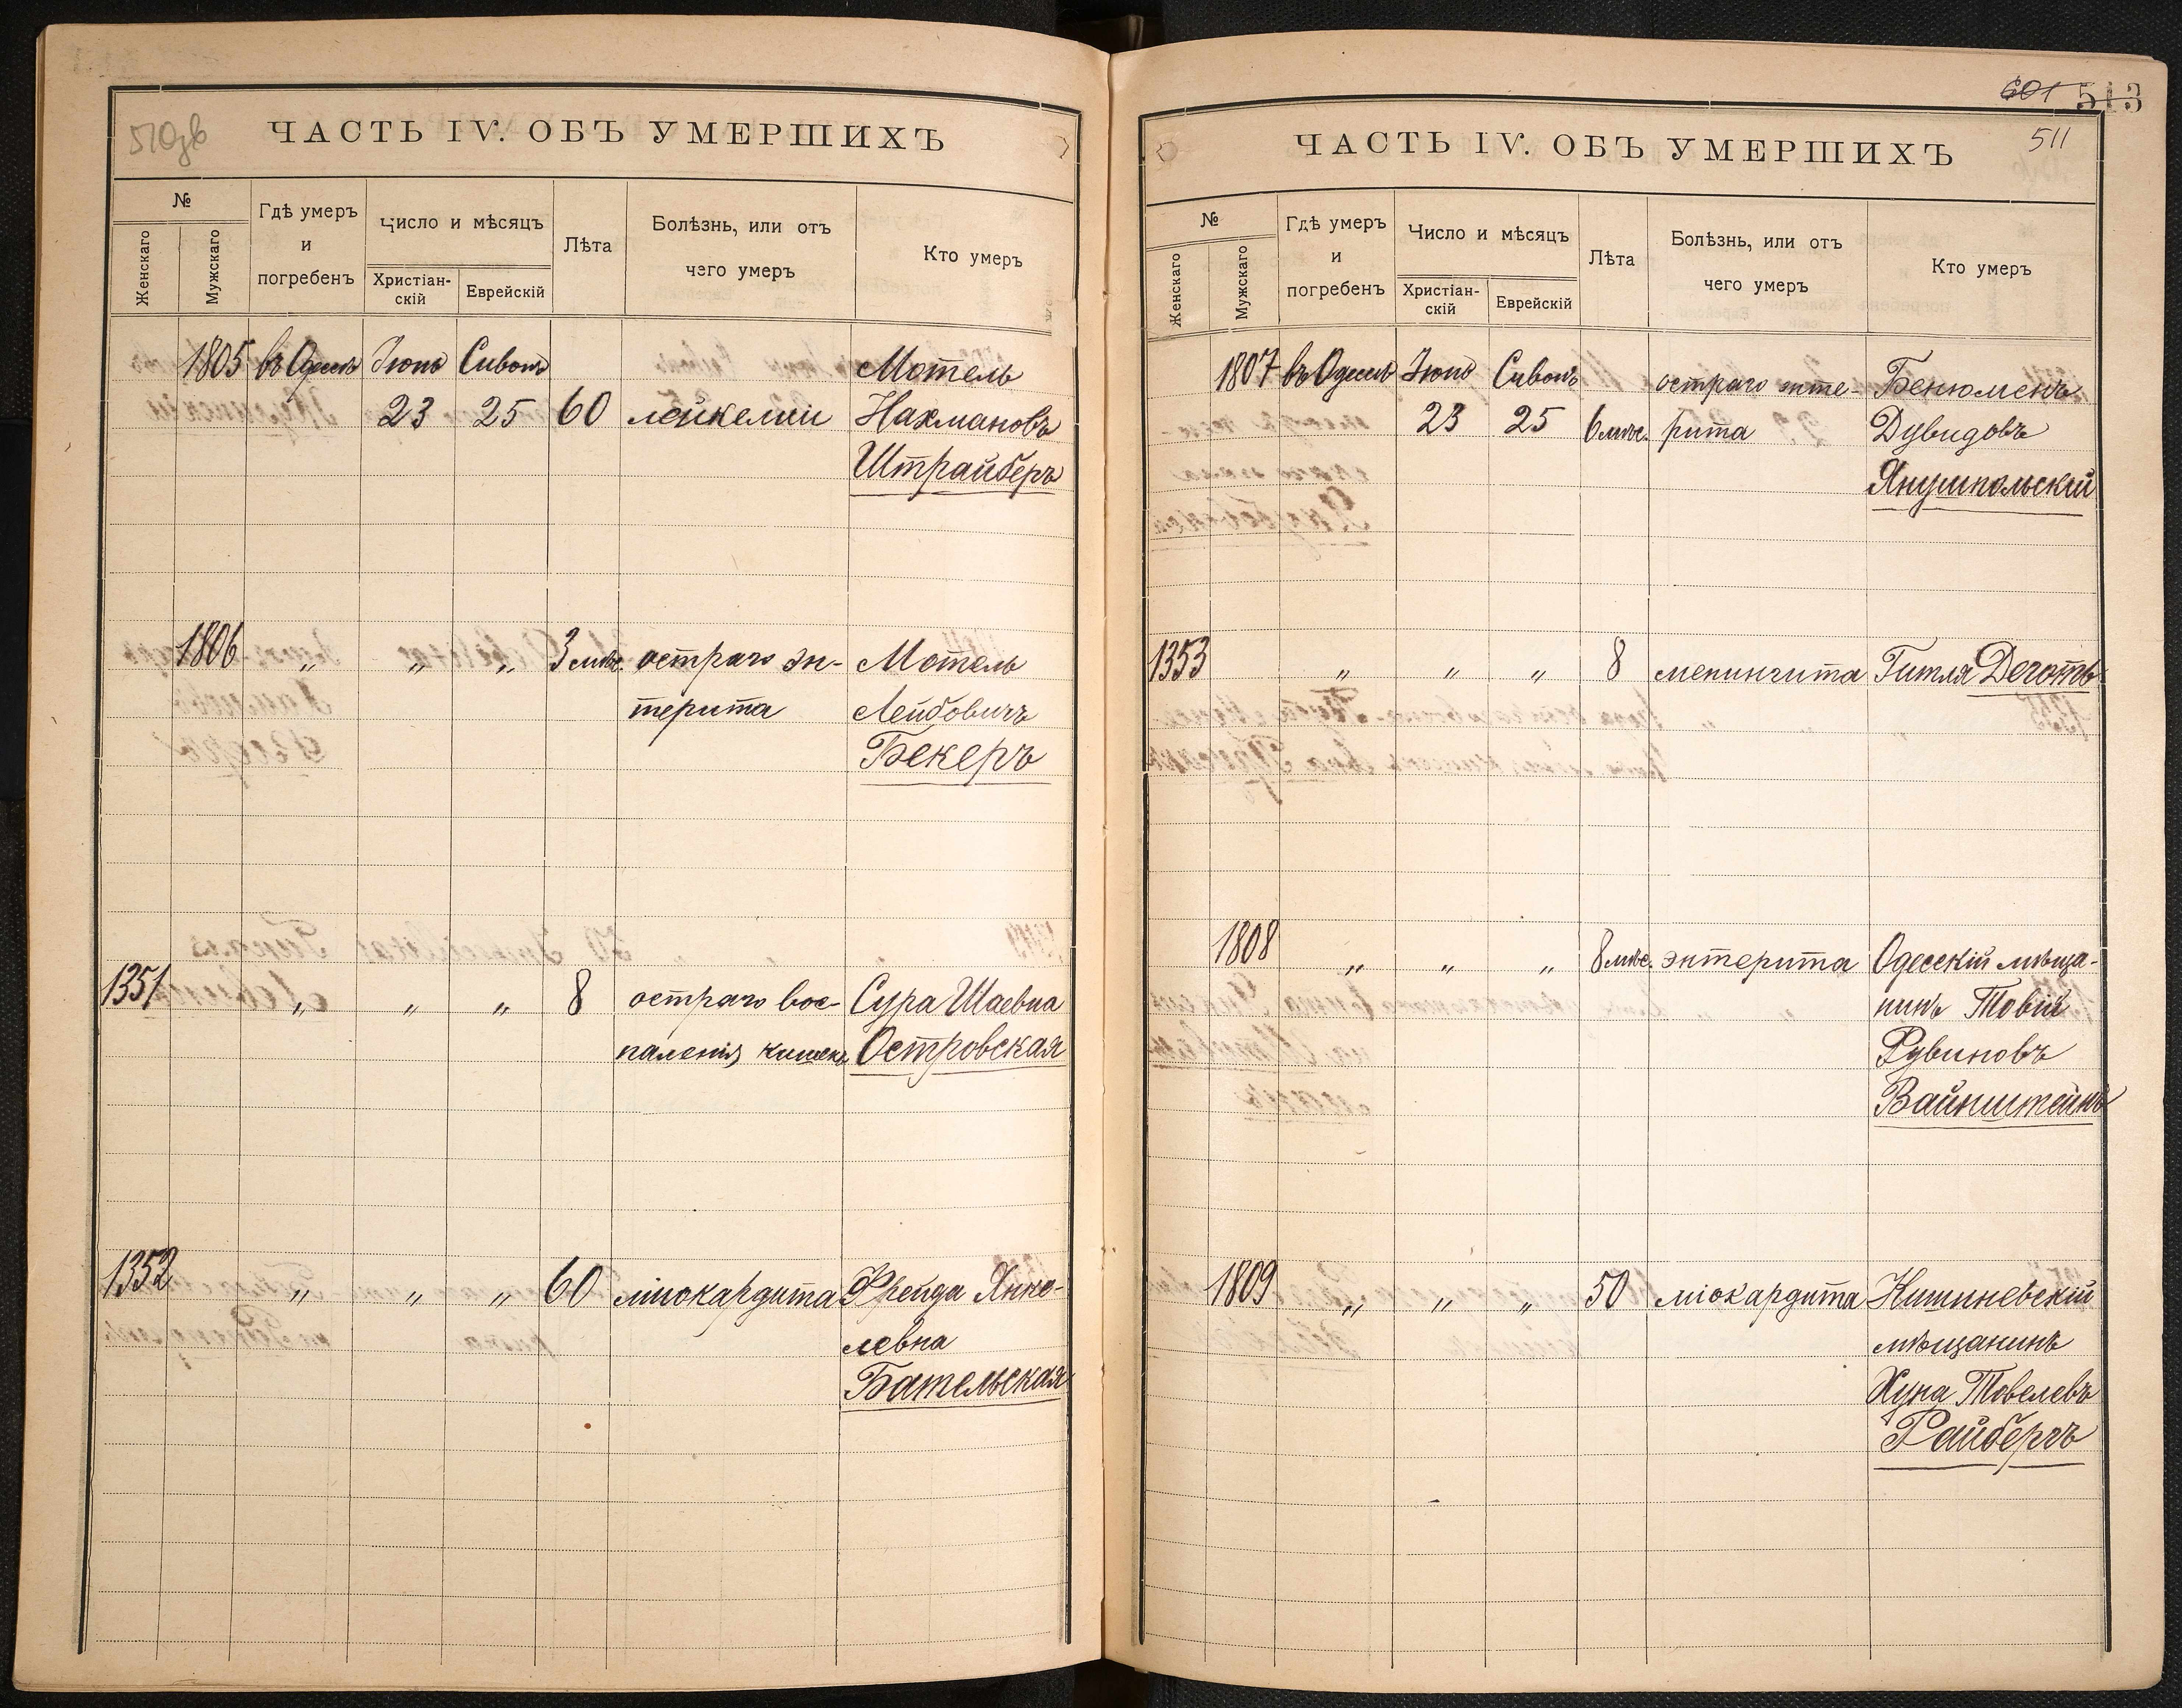 510зв
ЧАСТЬ IV. ОБЪ УМЕРШИХЪ
№
Женскаго
Мужскаго
Гдѣ умеръ
и
погребенъ
Число и мѣсяцъ
Христіан-
скій
Еврейскій
Лѣта
Болѣзнь, или отъ
чего умеръ
Кто умеръ
1805 въ Одессѣ Іюнь Сивонъ Мотель
23 25 60 лейкеміи Нахмановъ
Штрайберъ
1806 „ „ „ 3 мѣс. остраго эн- Мотель
терита Лейбовичъ
Бекеръ
1351 „ „ „ 8 остраго вос- Сура Шаевна
паленія кишекъ Островская
1352 „ „ „ 60 міокардита Фрейда Янке-
левна
Бательская
601 513
511
ЧАСТЬ IV. ОБЪ УМЕРШИХЪ
№
Женскаго
Мужскаго
Гдѣ умеръ
и
погребенъ
Число и мѣсяцъ
Христіан-
скій
Еврейскій
Лѣта
Болѣзнь, или отъ
чего умеръ
Кто умеръ
1807 въ Одессѣ Іюнь Сивонъ остраго энте- Бенюменъ
23 25 6 мѣс. рита Дувидовъ
Янушпольскій
1353 „ „ „ 8 менингита Гитля Деготь
1808 „ „ „ 8 мѣс. энтерита Одесскій мѣща-
нинъ Товій
Рувиновъ
Вайнштейнъ
1809 „ „ „ 50 міокардита Кишиневскій
мѣщанинъ
Хуна Товелевъ
Райберъ